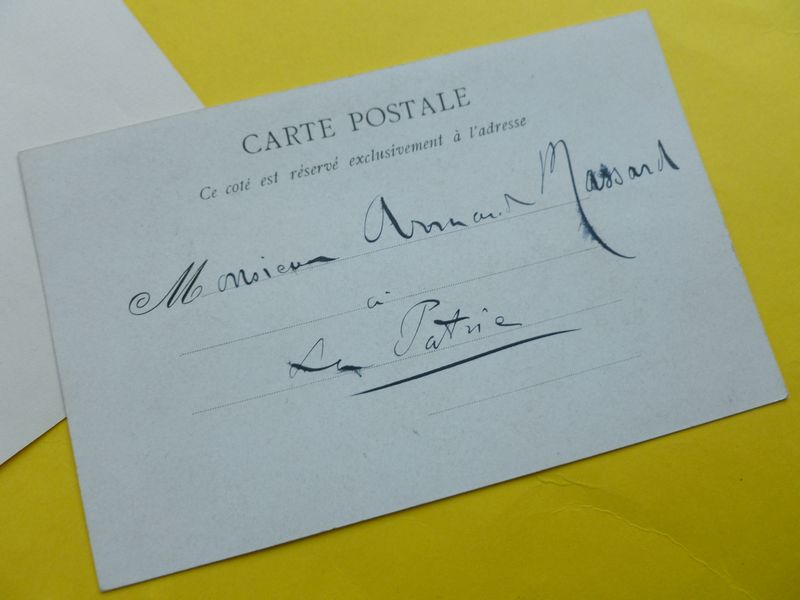 CARTE POSTALE
Ce coté est réservé exclusivement à l'adresse
Monsieur Armand Massard
à
La Patrie